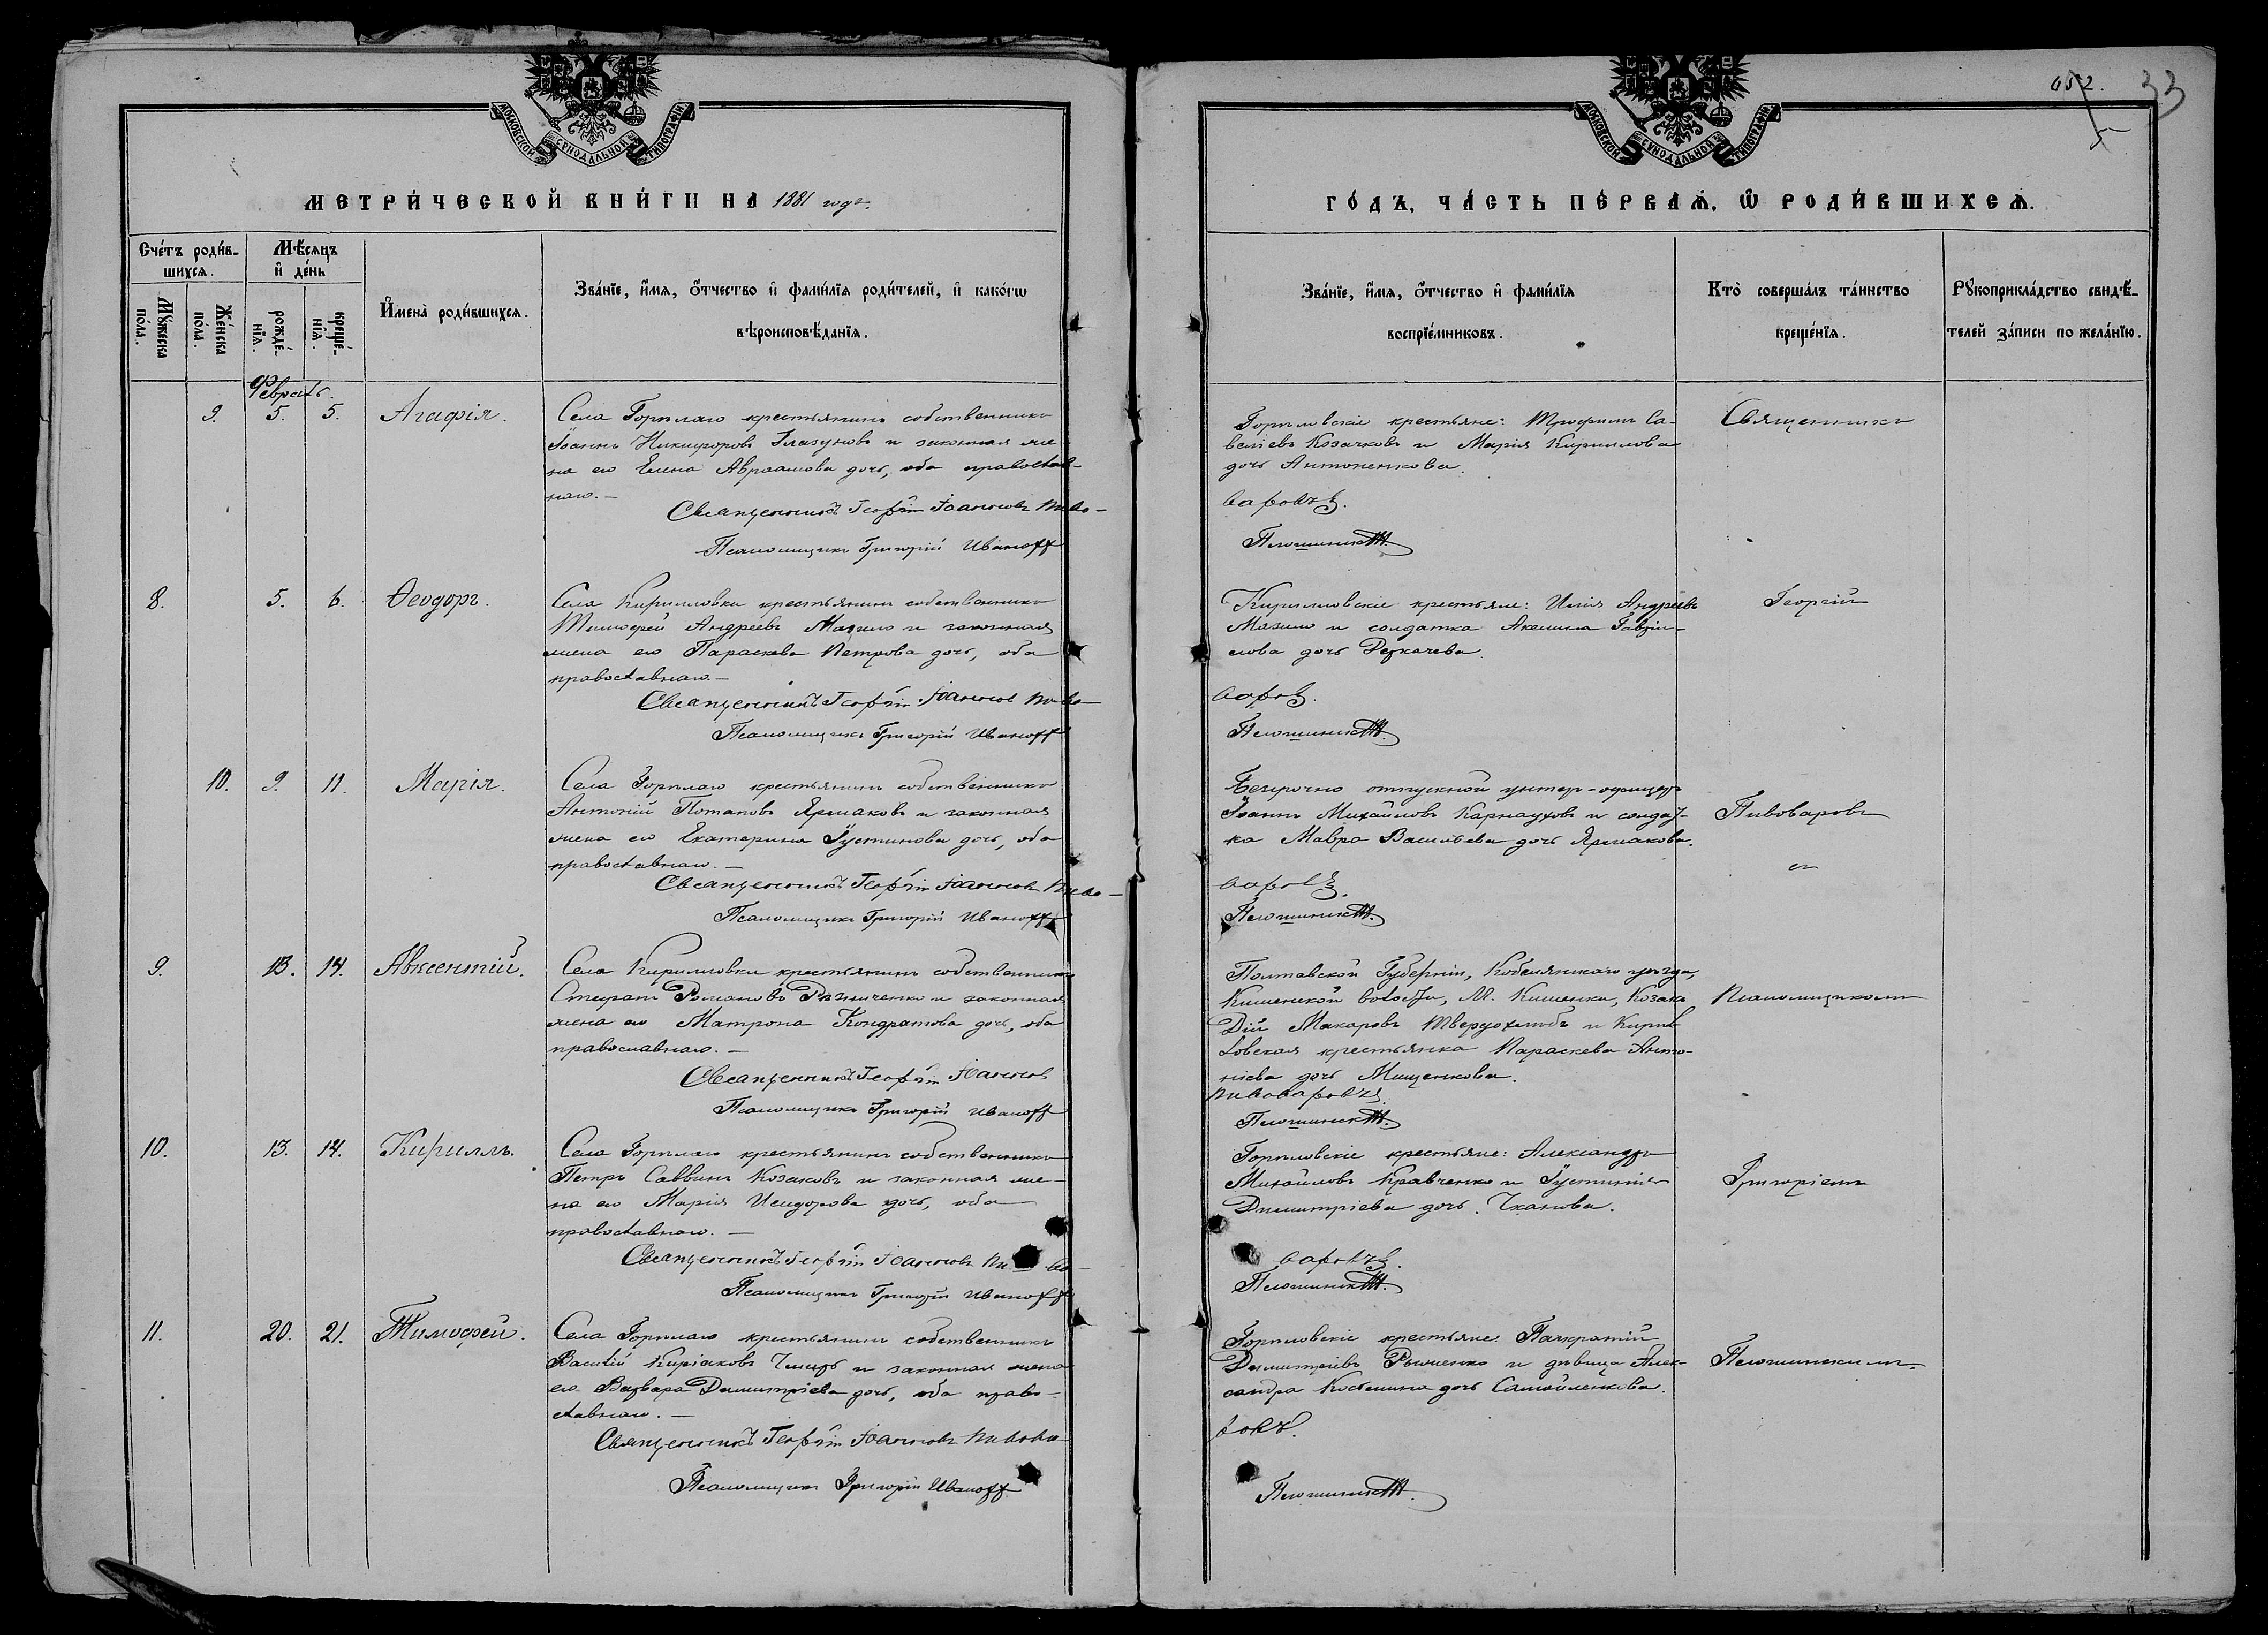 МОСКОВСКОЙ СѴНОДАЛЬНОЙ ТИПОГРАФІИ
МЕТРИ́ЧЕСКОЙ КНИ́ГИ НА 1881 годъ.
Счéтъ роди́в-
шихся.
Мѣ́сяцъ
и҆ дéнь
Мꙋжеска
по́ла.
Же́нска
по́ла.
рожде́-
нїѧ.
креще́-
нїѧ.
И҆мена̀ роди́вшихсѧ.
Зва́нїе, и҆́мѧ, ѻ҆́тчество и҆ фами́лїѧ роди́телей, и҆ како́гѡ
вѣроисповѣ́данїѧ.
Февраль.
9. 5. 5. Агафія.
Села Горѣлаго крестьянинъ собственникъ
Іоаннъ Никифоровъ Глазуновъ и законная же-
на его Елена Авраамова дочь, оба православ-
наго.
Священникъ Георгій Іоанновъ Пиво-
Псаломщикъ Григорій Иванофф
8. 5. 6. Ѳеодоръ.
Села Кирилловки крестьянинъ собственникъ
Тимоѳей Андреевъ Мазило и законная
жена его Параскева Петрова дочь, оба
православнаго.
Священникъ Георгій Іоаннов Пиво-
Псаломщикъ Григорій Иванофф
10. 9. 11. Марія.
Села Горѣлаго крестьянинъ собственникъ
Антоній Потаповъ Ярмаковъ и законная
жена его Екатерина Іустинова дочь, оба
православнаго.
Священникъ Георгій Іоанновъ Пиво-
Псаломщикъ Григорій Иванофф
9. 13. 14. Авксентій.
Села Кирилловки крестьянинъ собственникъ
Стефанъ Романовъ Резниченко и законная
жена его Матрона Кондратова дочь, оба
православнаго.
Священникъ Георгій Іоаннов
Псаломщикъ Григорій Иванофф
10. 13. 14. Кириллъ.
Села Горѣлаго крестьянинъ собственникъ
Петръ Саввинъ Козаковъ и законная же-
на его Марія Исидорова дочь, оба
православнаго.
Священникъ Георгій Іоанновъ Пиво-
Псаломщикъ Григорій Иванофф
11. 20. 21. Тимофей.
Села Горѣлаго крестьянинъ собственникъ
Василій Киріаковъ и законная жена
его Варвара Димитріева дочь, оба право-
славнаго.
Священникъ Георгій Іоанновъ Пивова
Псаломщикъ Григорій Иванофф
652. 33
5
МОСКОВСКОЙ СѴНОДАЛЬНОЙ ТИПОГРАФІИ
ГО́ДЪ, ЧА́СТЬ ПЕ́РВАѦ, Ѡ҆ РОДИ́ВШИХСѦ.
Зва́нїе, и҆́мѧ, ѻ҆́тчество и҆ фами́лїѧ
воспрїе́мниковъ.
Кто̀ соверша́лъ та́инство
креще́нїѧ.
Рꙋкоприкла́дство свидѣ́-
телей за́писи по жела́нїю.
Горѣловскіе крестьяне: Трофимъ Са-
веліевъ Козачковъ и Марія Кириллова
дочь Антоненкова.
Священникъ
варовъ.
Пелюшинскій.
Кирилловскіе крестьяне: Илія Андреевъ
Мазило и солдатка Акилина Гаврі-
лова дочь Деркачева.
Георгій
варов.
Пелюшинскій.
Безсрочно отпускной унтеръ-офицеръ
Іоаннъ Михайловъ Карнауховъ и солдат-
ка Мавра Васильева дочь Ярмакова.
Пивоваровъ
съ
варовъ.
Пелюшинскій.
Полтавской Губерніи, Кобелякскаго уѣзда,
Кишенской волости, М. Кишенки, Козакъ
Дій Макаровъ Твердохлѣбъ и Кирил-
ловская крестьянка Параскева Анто-
ніева дочь Мищенкова.
Псаломщикомъ
Пивоваровъ.
Пелюшинскій.
Горѣловскіе крестьяне: Александръ
Михайловъ Кравченко и Іустинія
Димитріева дочь Чканова.
Григоріемъ
варовъ.
Пелюшинскій.
Горѣловскіе крестьяне: Панкратій
Димитріевъ и дѣвица Алек-
сандра Косьмина дочь Самойленкова.
Пелюшинскимъ.
ровъ.
Пелюшинскій.